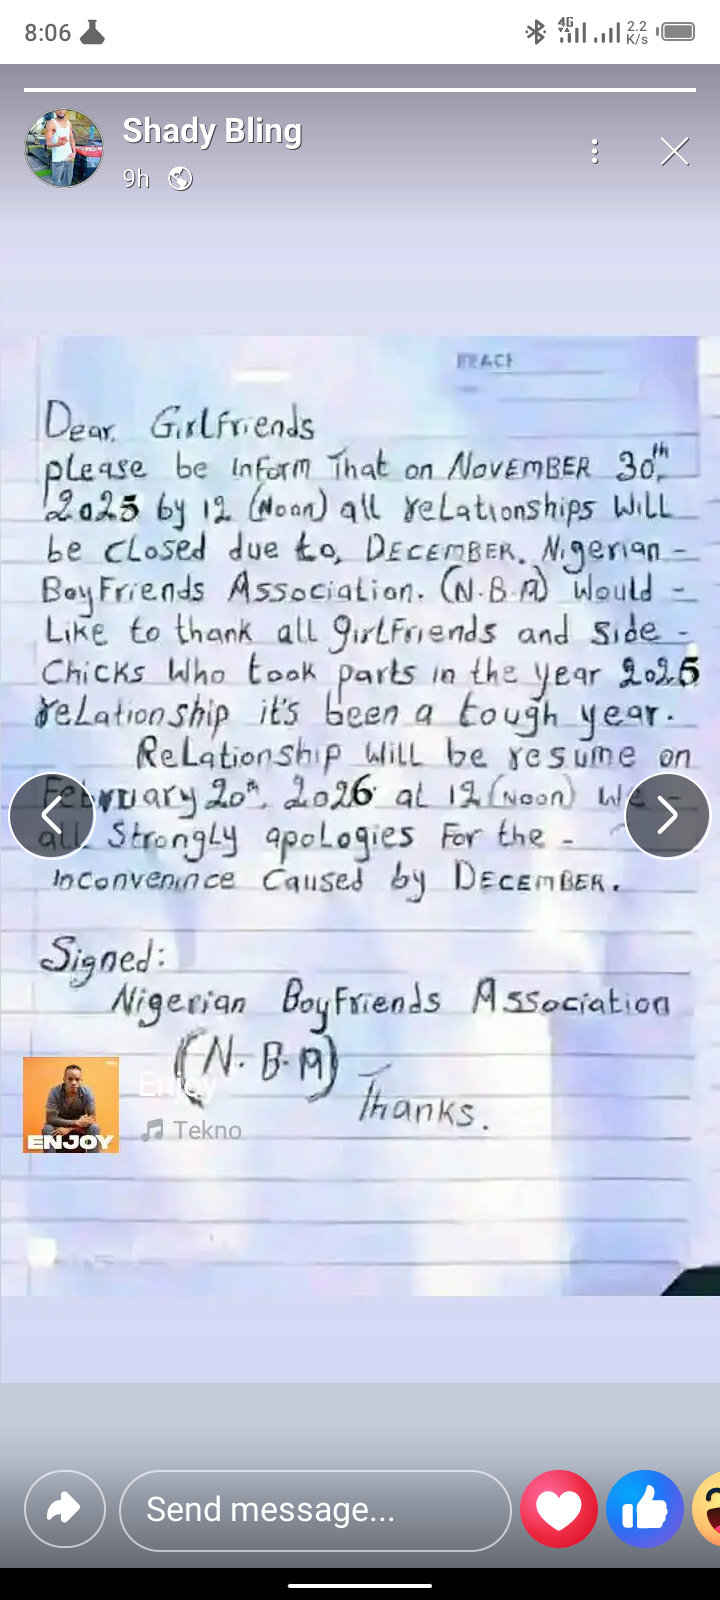 8:06
4G
2.2
K/s
Shady Bling
9h
Dear. Girlfriends
please be inform That on NOVEMBER 30th
2025 by 12 (Noon) all relationships will
be closed due to, DECEMBER. Nigerian -
BoyFriends Association. (N.B.A) Would -
Like to thank all girlfriends and side -
Chicks who took parts in the year 2025
relationship it's been a tough year.
Relationship will be resume on
February 20th, 2026 at 12 (Noon) we -
all Strongly apologies For the -
Inconvenince Caused by DECEMBER.
Signed:
Nigerian BoyFriends Association
(N.B.A)
Thanks.
ENJOY
Enjoy
Tekno
Send message...